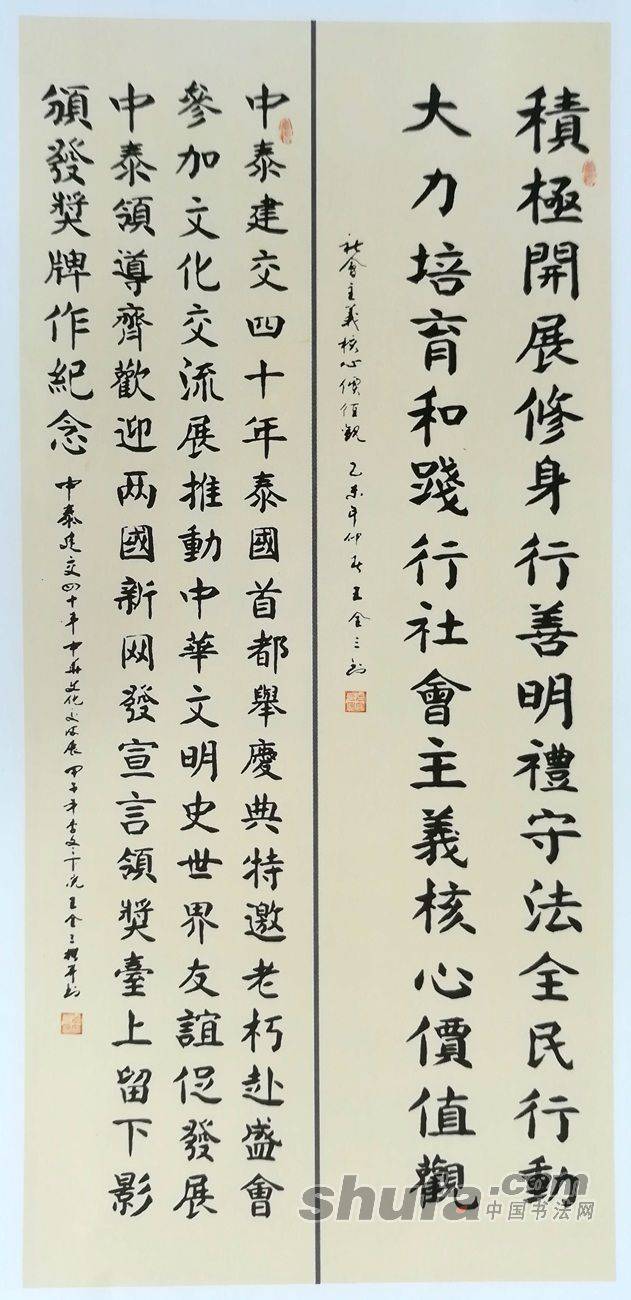 積極開展修身行善明禮守法全民行動
大力培育和踐行社會主義核心價值觀
社會主義核心價值觀 乙未年仲秋 王金三書
中泰建交四十年泰國首都舉慶典特邀老朽赴盛會
參加文化交流展推動中華文明史世界友誼促發展
中泰領導齊歡迎两國新网發宣言領獎臺上留下影
頒發獎牌作紀念
中泰建交四十年中華文化交流展 王金三
shufa.com
中国书法网